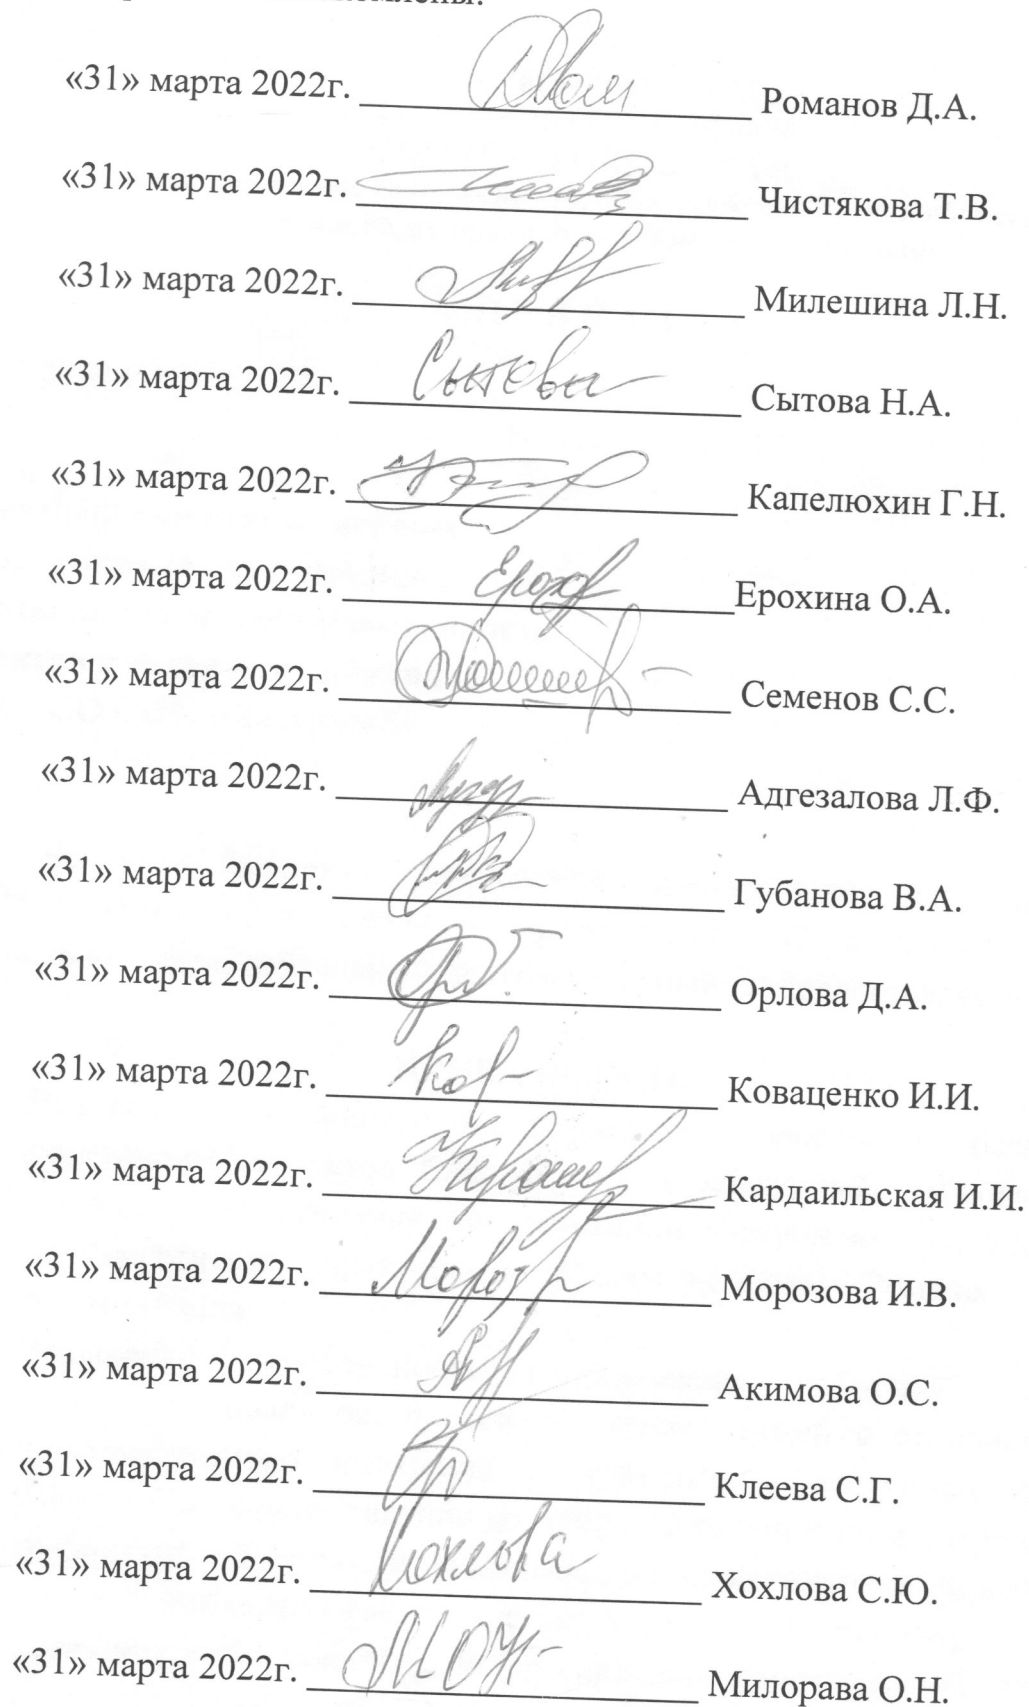 «31» марта 2022г. Романов Д.А.
«31» марта 2022г. Чистякова Т.В.
«31» марта 2022г. Милешина Л.Н.
«31» марта 2022г. Сытова Сытова Н.А.
«31» марта 2022г. Капелюхин Г.Н.
«31» марта 2022г. Ерохина О.А.
«31» марта 2022г. Семенов С.С.
«31» марта 2022г. Адгезалова Л.Ф.
«31» марта 2022г. Губанова В.А.
«31» марта 2022г. Орлова Д.А.
«31» марта 2022г. Коваценко И.И.
«31» марта 2022г. Кардаильская И.И.
«31» марта 2022г. Морозова И.В.
«31» марта 2022г. Акимова О.С.
«31» марта 2022г. Клеева С.Г.
«31» марта 2022г. Хохлова Хохлова С.Ю.
«31» марта 2022г. Милорава О.Н.